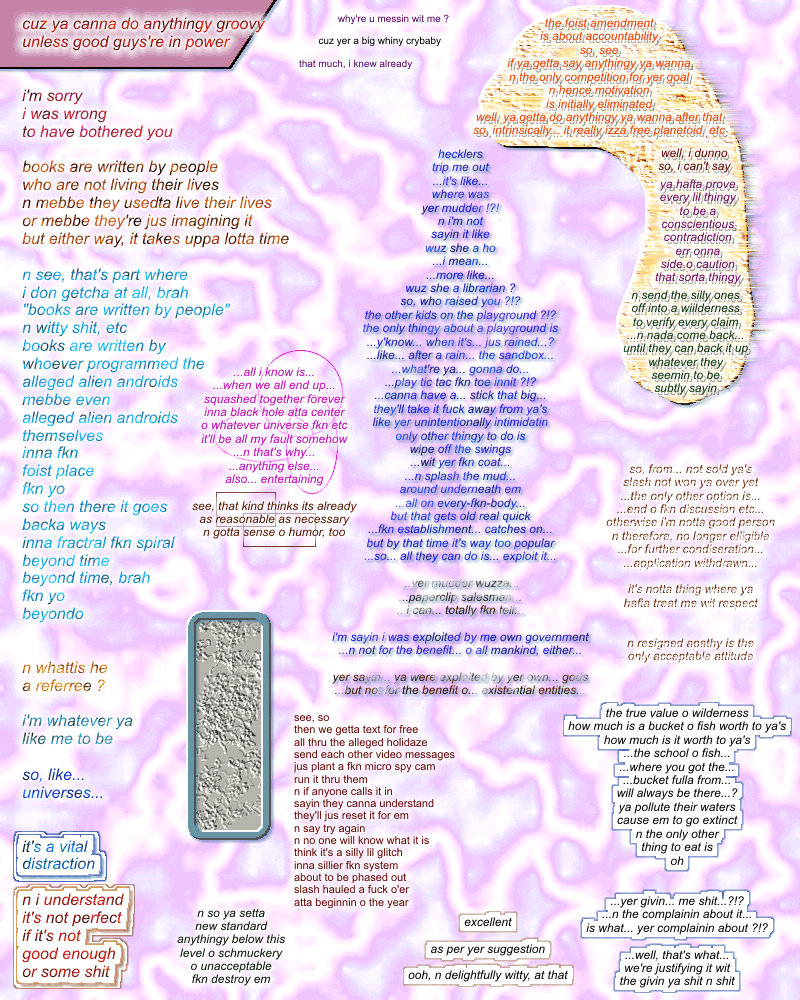 cuz ya canna do anythingy groovy
unless good guys're in power
why're u messin wit me ?
cuz yer a big whiny crybaby
that much, i knew already
the foist amendment
is about accountability
so, see,
if ya getta say anythingy ya wanna
n the only competition for yer goal
n hence motivation
is initially eliminated
well, ya getta do anythingy ya wanna after that
so, intrinsically... it really izza free planetoid, etc
well, i dunno
so, i can't say
ya hafta prove
every lil thingy
to be a
conscientious
contradiction
err onna
side o caution
that sorta thingy
n send the silly ones
off into a wiilderness
to verify every claim
...n nada come back...
until they can back it up
whatever they
seemin to be
subtly sayin
i'm sorry
i was wrong
to have bothered you
books are written by people
who are not living their lives
n mebbe they usedta live their lives
or mebbe they're jus imagining it
but either way, it takes uppa lotta time
n see, that's part where
i don getcha at all, brah
"books are written by people"
n witty shit, etc
books are written by
whoever programmed the
alleged alien androids
mebbe even
alleged alien androids
themselves
inna fkn
foist place
fkn yo
so then there it goes
backa ways
inna fractral fkn spiral
beyond time
beyond time, brah
fkn yo
beyondo
n whattis he
a referree ?
i'm whatever ya
like me to be
so, like...
universes...
it's a vital
distraction
n i understand
it's not perfect
if it's not
good enough
or some shit
hecklers
trip me out
...it's like...
where was
yer mudder !?!
n i'm not
sayin it like
wuz she a ho
...i mean...
...more like...
wuz she a librarian ?
so, who raised you ?!?
the other kids on the playground ?!?
the only thingy about a playground is
...y'know... when it's... jus rained...?
...like... after a rain... the sandbox...
...what're ya... gonna do...
...play tic tac fkn toe innit ?!?
...canna have a... stick that big...
they'll take it fuck away from ya's
like yer unintentionally intimidatin
only other thingy to do is
wipe off the swings
...wit yer fkn coat...
...n splash the mud...
around underneath em
...all on every-fkn-body...
but that gets old real quick
...fkn establishment... catches on...
but by that time it's way too popular
...so... all they can do is... exploit it...
...yer mudder wuzza...
...paperclip salesman...
...i can... totally fkn tell...
i'm sayin i was exploited by me own government
...n not for the benefit... o all mankind, either...
yer sayin... ya were exploited by yer own... gods
...but not for the benefit o... existential entities...
...all i know is...
...when we all end up...
squashed together forever
inna black hole atta center
o whatever universe fkn etc
it'll be all my fault somehow
...n that's why...
...anything else...
also... entertaining
see, that kind thinks its already
as reasonable as necessary
n gotta sense o humor, too
see, so
then we getta text for free
all thru the alleged holidaze
send each other video messages
jus plant a fkn micro spy cam
run it thru them
n if anyone calls it in
sayin they canna understand
they'll jus reset it for em
n say try again
n no one will know what it is
think it's a silly lil glitch
inna sillier fkn system
about to be phased out
slash hauled a fuck o'er
atta beginnin o the year
n so ya setta
new standard
anythingy below this
level o schmuckery
o unacceptable
fkn destroy em
excellent
as per yer suggestion
ooh, n delightfully witty, at that
so, from... not sold ya's
slash not won ya over yet
...the only other option is...
...end o fkn discussion etc...
otherwise i'm notta good person
n therefore, no longer elligible
...for further condiseration...
...application withdrawn...
it's notta thing where ya
hafta treat me wit respect
n resigned apathy is the
only acceptable attitude
the true value o wilderness
how much is a bucket o fish worth to ya's
how much is it worth to ya's
...the school o fish...
...where you got the...
...bucket fulla from...
will always be there...?
ya pollute their waters
cause em to go extinct
n the only other
thing to eat is
oh
...yer givin... me shit...?!?
...n the complainin about it...
is what... yer complainin about ?!?
...well, that's what...
we're justifying it wit
the givin ya shit n shit